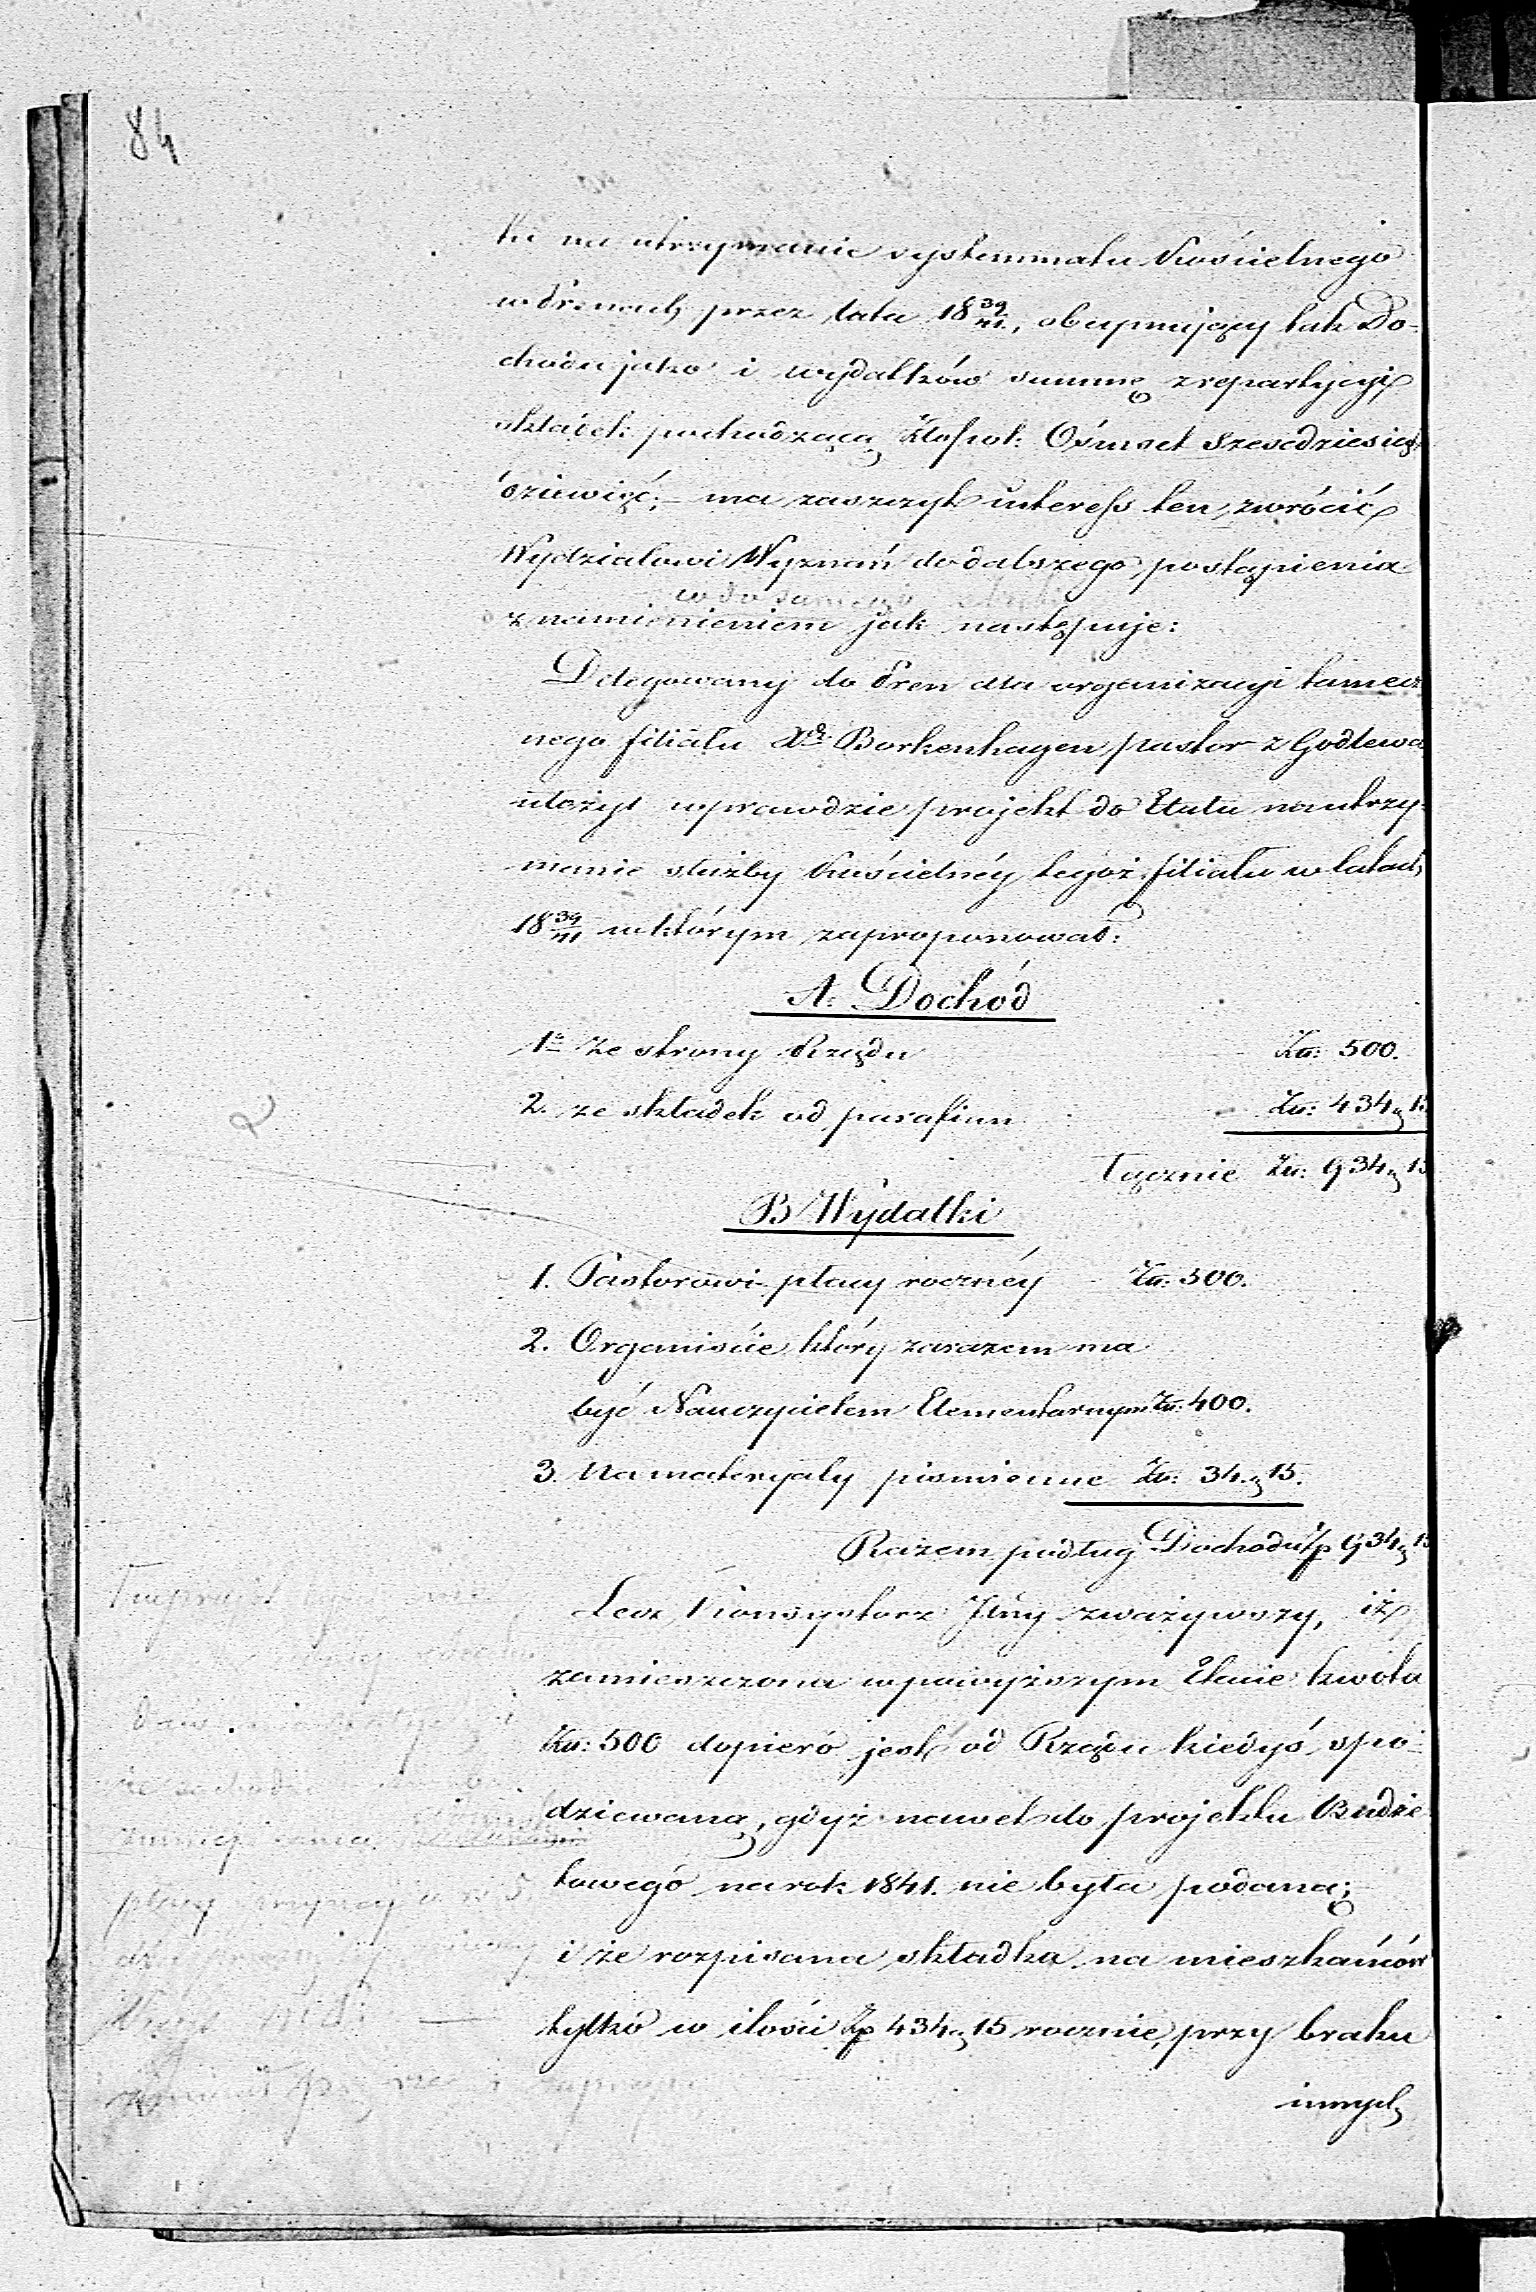 84
tu na utrzymanie systemmatu Kościelnego
w Prenach przez lata 18 39/41, obeymujący tak Do-
chodu jako i wydatków summę z repartycyi
składek pochodzącą Złofpol: Ośmset Szescdziesiąt
dziewięć; – ma zaszczyt interess ten zwrócić
Wydziałowi Wyznań do dalszego postąpienia
z namienieniem jak następuje:
Delegowany do Pren dla organizacyi tamecz
nego filiału Xdz Borkenhagen pastor z Godlewa
ułożył wprawdzie projekt do Etatu na utrzy-
manie służby Kościelnéy tegoż filiału w latach
18 39/41 w którym zaproponował:
A. Dochód
1o Ze strony Rządu Złł: 500.
2. ze składek od parafian Złł: 434 g 15
Łącznie Złł: 934 g 15
B Wydatki
1. Pastorowi płacy rocznéy Złł: 500.
2. Organiście który zarazem ma
być Nauczycielem Elementarnym Złł: 400.
3. Na materyały piśmienne Złł: 34. g 15.
Razem podług Dochodu Złp 934 g 15
Lecz Konsystorz Jlny zważywszy, iż
zamieszczona w powyższym Etacie kwota
Złł: 500 dopiero jest od Rządu kiedyś spo-
dziewaną, gdyż nawet do projektu Budże
towego na rok 1841. nie była podaną;
i że rozpisana składka na mieszkańców
tylko w ilości Złp 434 g 15 rocznie, przy braku
innych